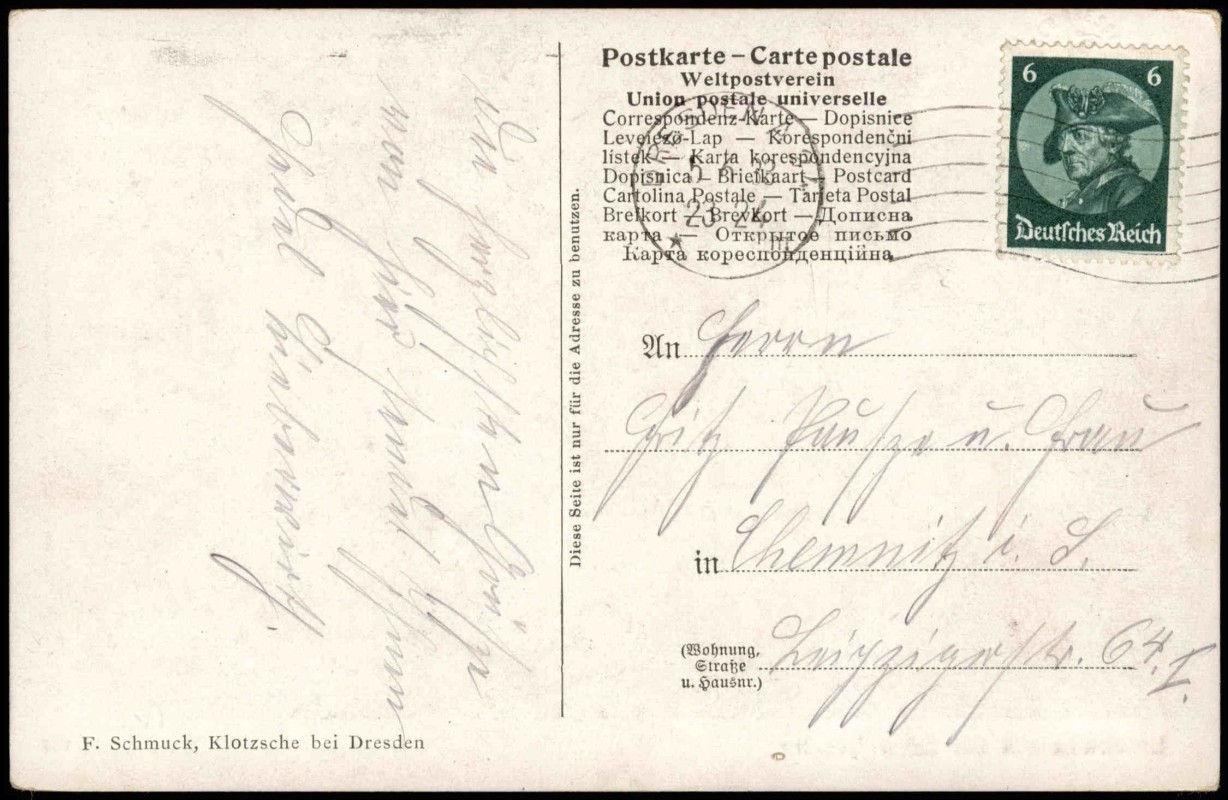 Die herzlichsten Grüße
von hier sendet Ihnen
Paul
Postkarte – Carte postale
Weltpostverein
Union postale universelle
Correspondenz-Karte — Dopisnice
Levelező-Lap — Korespondenční
lístek — Karta korespondencyjna
Dopisnica — Briefkaart — Postcard
Cartolina Postale — Tarjeta Postal
Brefkort — Brevkort — Дописна
карта — Открытое письмо
Карта кореспонденційна
DRESDEN
23-24
6 6
Deutsches Reich
Diese Seite ist nur für die Adresse zu benutzen.
An Herrn
Fritz u. Frau
in Chemnitz i. S.
(Wohnung,
Straße
u. Hausnr.)
Leipzigerstr. 64. I.
F. Schmuck, Klotzsche bei Dresden